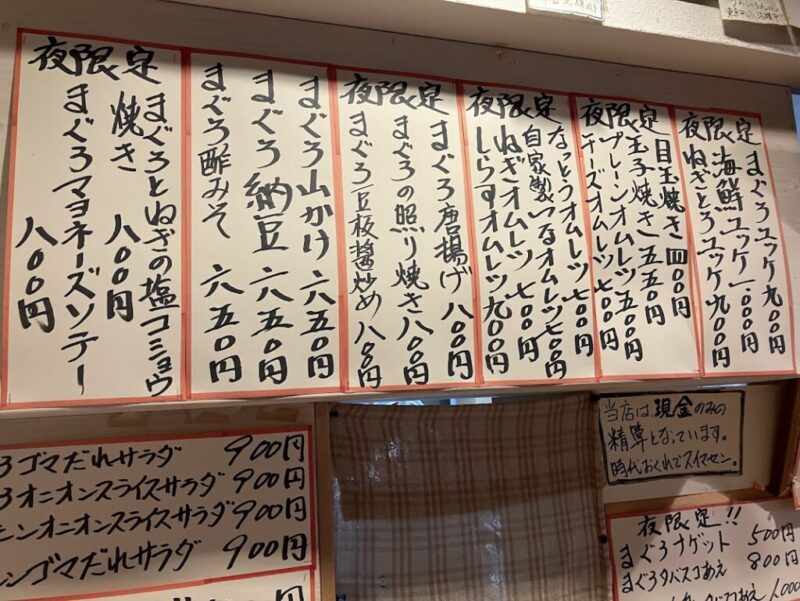 夜限定
まぐろユッケ 九〇〇円
海鮮ユッケ 一、〇〇〇円
ねぎとろユッケ 九〇〇円
夜限定
目玉焼き 四〇〇円
玉子焼き 五五〇円
プレーンオムレツ 五〇〇円
チーズオムレツ 七〇〇円
夜限定
なっとうオムレツ 七〇〇円
自家製つなオムレツ 七〇〇円
ねぎオムレツ 七〇〇円
しらすオムレツ 九〇〇円
夜限定
まぐろ唐揚げ 八〇〇円
まぐろの照り焼き 八〇〇円
まぐろ豆板醤炒め 八〇〇円
まぐろ山かけ 六五〇円
まぐろ納豆 六五〇円
まぐろ酢みそ 六五〇円
夜限定
まぐろとねぎの塩コショウ
焼き 八〇〇円
まぐろマヨネーズソテー
八〇〇円
ろゴマだれサラダ 900円
ろオニオンスライスサラダ 900円
ンオニオンスライスサラダ 900円
ンゴマだれサラダ 900円
当店は、現金のみの
精算となっています。
時代おくれでスイマセン。
夜限定!!
まぐろナゲット 500円
まぐろタバスコあえ 800円
タバスコあえ 1,000